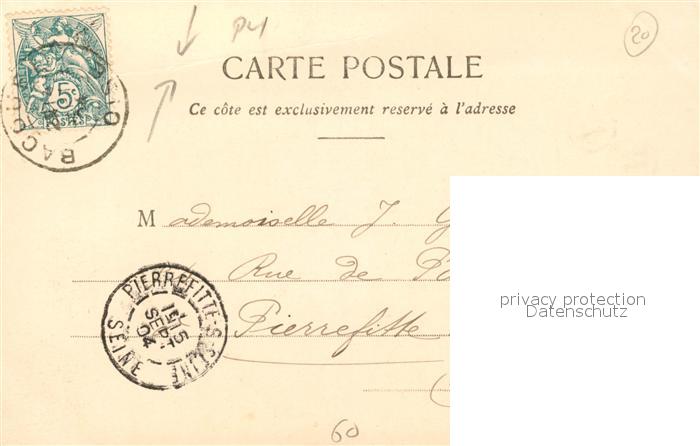 P4
20
CARTE POSTALE
Ce côte est exclusivement reservé à l'adresse
5c
POSTES
BACO
Mademoiselle J. G
Rue de
Pierrefitte
PIERREFITTE-S-
SEINE
15
SEPT
04
privacy protection
Datenschutz
60